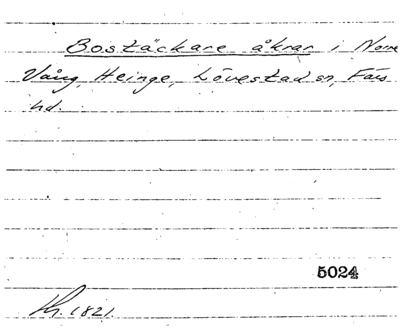 Bostäckare åkrar i Norre
Vång, Heinge, Lövestad sn, Färs
hd.
5024
1821.